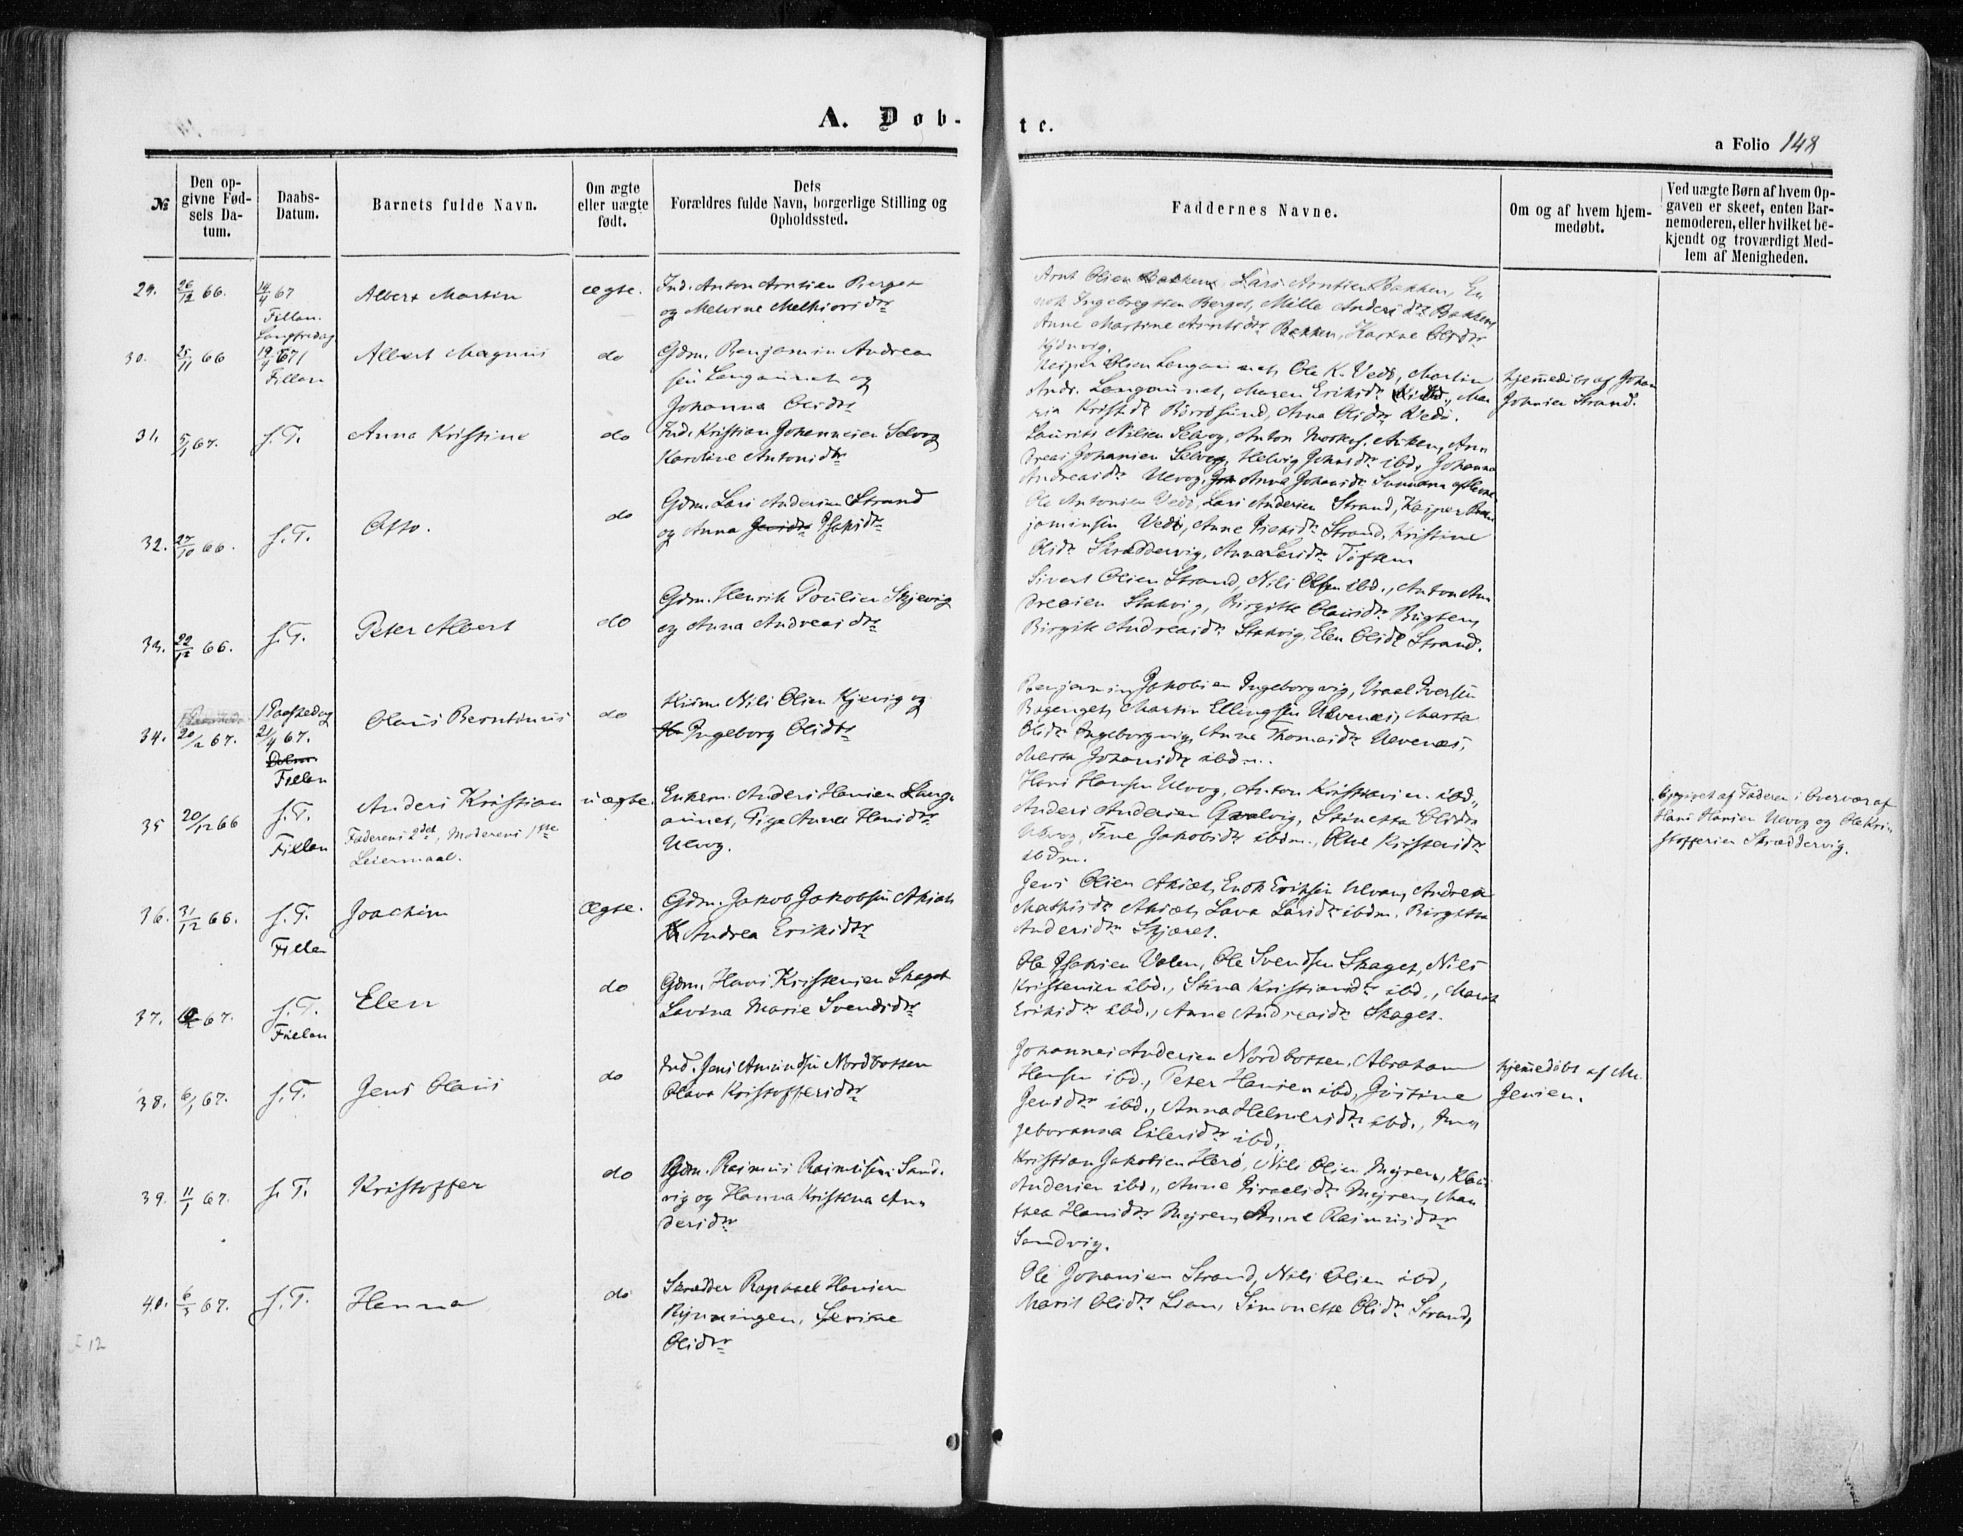 A. Døb-
te.
a Folio 148
№
Den op-
givne Fød-
sels Da-
tum.
Daabs-
Datum.
Barnets fulde Navn.
Om ægte
eller uægte
født.
Dets
Forældres fulde Navn, borgerlige Stilling og
Opholdssted.
Faddernes Navne.
Om og af hvem hjem-
medøbt.
Ved uægte Børn af hvem Op-
gaven er skeet, enten Bar-
nemoderen, eller hvilket be-
kjendt og troværdigt Med-
lem af Menigheden.
29.
26/12 66.
14/4 67
Fillan.
Albert Martin
ægte.
Ind. Anton Arntsen Berget
og Melvine Melkiorsdtr
Arnt Olsen Bakken, Lars Arntsen Bakken, En
Ingebregtsen Berget, Mille Andersdtr Bakken,
Anne Martine Arntsdtr Bakken,
30.
25/11 66
Langfredag
19/4 67
Fillan
Albert Magnus
do
Gdm. Benjamin Andrea
sen Langaunet og
Johanna Olsdtr
Olsen Langaunet, Ole K. Vedø, Martin
Andr. Langaunet, Maren Eriksdtr Ma
ria Kristdtr Burøsund, Anna Olsdtr Vedø.
hjemmedöbt af Johan
Johnsen Strand.
31.
5/1 67.
s. T.
Anna Kristine
do
Ind. Kristian Johannesen Selvog
Karoline Antonsdtr
Laurits Nilsen Selvog, Anton
dreas Johansen Selvog, Helvig Johnsdtr ibd, Johanna
Andreasdtr Ulvog, Anna Johansdtr
32.
27/10 66.
s. T.
Otto.
do
Gdm. Lars Andersen Strand
og Anna Isaksdtr
Ole Antonsen Vedø, Lars Andersen Strand, Kasper Ben
jaminsen Vedø, Anne Isaksdtr Strand, Kristine
Olsdtr Skræddervig, Anna Larsdtr Töften
33.
22/12 66.
s. T.
Peter Albert
do
Gdm. Henrik Poulsen Skjevig
og Anna Andreasdtr
Sivert Olsen Strand, Nils Olsen ibd., Anton An
dreasen Stakvig, Birgitte Olausdtr Bugten,
Birgit Andreasdtr Stakvig, Elen Olsdtr Strand.
34.
20/2 67.
1 Paaskedag
21/4 67.
Fillan
Olaus Berntinus
do
Husm. Nils Olsen Kjevig og
Ingeborg Olsdtr
Benjamin Jakobsen Ingeborgvig, Iversen
Martin Ellingsen Ulvenes, Marta
Olsdtr Ingeborgvig, Anne Thomasdtr Ulvenæs,
Marta Johansdtr ibdm.
35
20/12 66
s. T.
Fillan
Anders Kristian
Faderens 2det, Moderens 1ste
Leiermaal.
uægte.
Enkem. Anders Hansen Lang
aunet, Pige Anna Hansdtr
Ulvog.
Hans Hansen Ulvog, Anton Kristensen ibd.,
Anders Andersen Stinetta Olsdtr
Ulvog, Trine Jakobsdtr ibdm., Oline Kristensdtr
ibdm.
Opgivet af Faderen i Overvær af
Hans Hansen Ulvog og Ole Kri
stoffersen Skræddervig.
36.
31/12 66.
s. T.
Fillan
Joachim
Ægte.
Gdm. Jakob Jakobsen
Andrea Eriksdtr
Jens Olsen Enok Eriksen Ulvan, Andrea
Mathisdtr Lava Larsdtr ibdm. Birgitta
Andersdtr Skjæret.
37.
67.
s. T.
Fillan
Elen
do
Gdm. Hans Kristensen Skaget
Lavina Marie Svendsdtr
Ole Isaksen Valen, Ole Svendsen Skaget, Nils
Kristensen ibd., Stina Kristiansdtr ibd., Marit
Eriksdtr ibd., Anne Andreasdtr Skaget.
38.
6/1 67.
s. T.
Jens Olaus
do
Ind. Jens Amundsen Nordbotten
Olava Kristoffersdtr
Johannes Andersen Nordbotten, Abraham
Hansen ibd., Peter Hansen ibd, Justine
Jensdtr ibd., Anna Helmersdtr ibd., Inge
geboranna Eilersdtr ibd.
hjemmedöbt af M.
Jensen.
39.
11/1 67.
s. T.
Kristoffer
do
Gdm. Rasmus Rasmussen Sand-
vig og Hanna Kristina An
dersdtr
Kristian Jakobsen Herø, Nils Olsen Myren, Klaus
Andersen ibd., Anne Israelsdtr Myren, Mar
thea Hansdtr Myren, Anne Rasmusdtr
Sandvig.
40.
6/3 67.
s. T.
Hanna
do
Skrædder Raphael Hansen
Rynningen, Serine
Olsdtr
Ole Johansen Strand, Nils Olsen ibd,
Marit Olsdtr Lian, Simonette Olsdtr Strand,